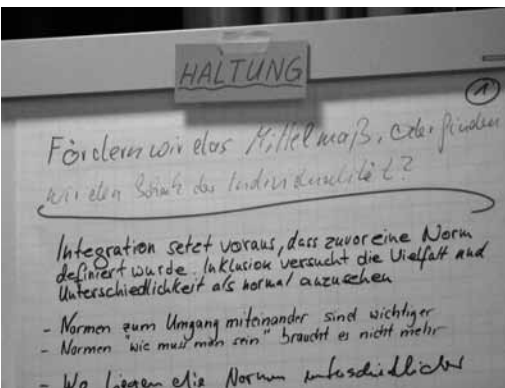 HALTUNG
1
Fördern wir das Mittelmaß, oder finden
wir den Schatz der Individualität?
Integration setzt voraus, dass zuvor eine Norm
definiert wurde. Inklusion versucht die Vielfalt und
Unterschiedlichkeit als normal anzusehen
- Normen zum Umgang miteinander sind wichtiger
- Normen "wie muss man sein" braucht es nicht mehr
- Wo liegen die Normen unterschiedlicher